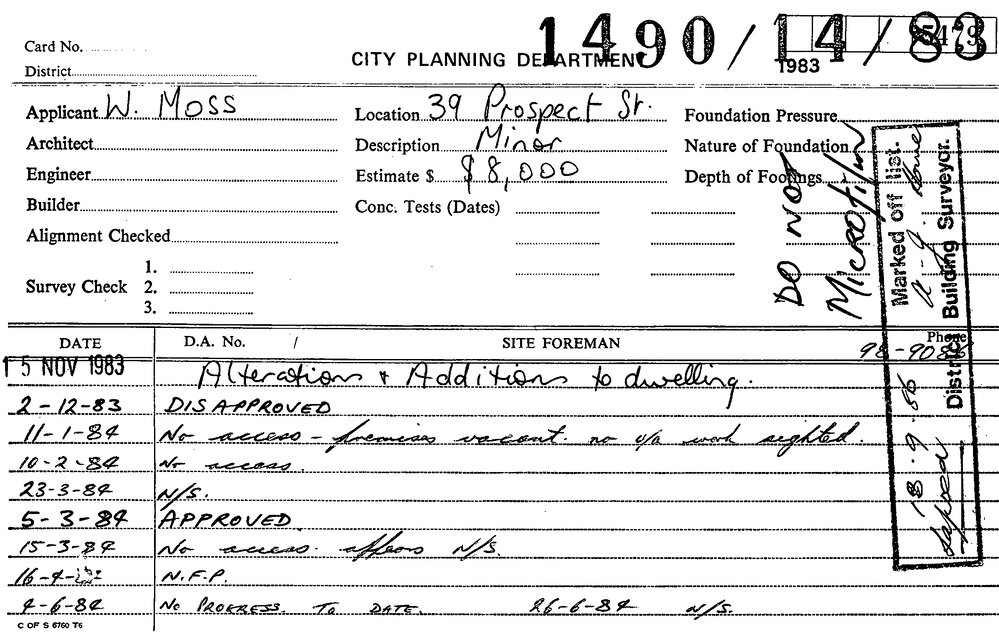 1490/14/83
Card No.
District
CITY PLANNING DEPARTMENT
1983
Applicant W. Moss
Location 39 Prospect St.
Foundation Pressure
Architect
Description Minor
Nature of Foundation
Engineer
Estimate $ $8,000
Depth of Footings
Builder
Conc. Tests (Dates)
Alignment Checked
Survey Check
1.
2.
3.
DO NOT
MICROFILM
Marked off list.
District Building Surveyor.
18.9.86
lapsed
DATE
D.A. No. /
SITE FOREMAN
Phone
15 NOV 1983 Alterations & Additions to dwelling.
2-12-83 DISAPPROVED
11-1-84 No access - premises vacant. no u/a work sighted.
10-2-84 No access.
23-3-84 N/S.
5-3-84 APPROVED
15-3-84 No access. appears N/S.
16-4- N.F.P.
4-6-84 No PROGRESS. To DATE. 26-6-84 N/S.
C OF S 6760 T6